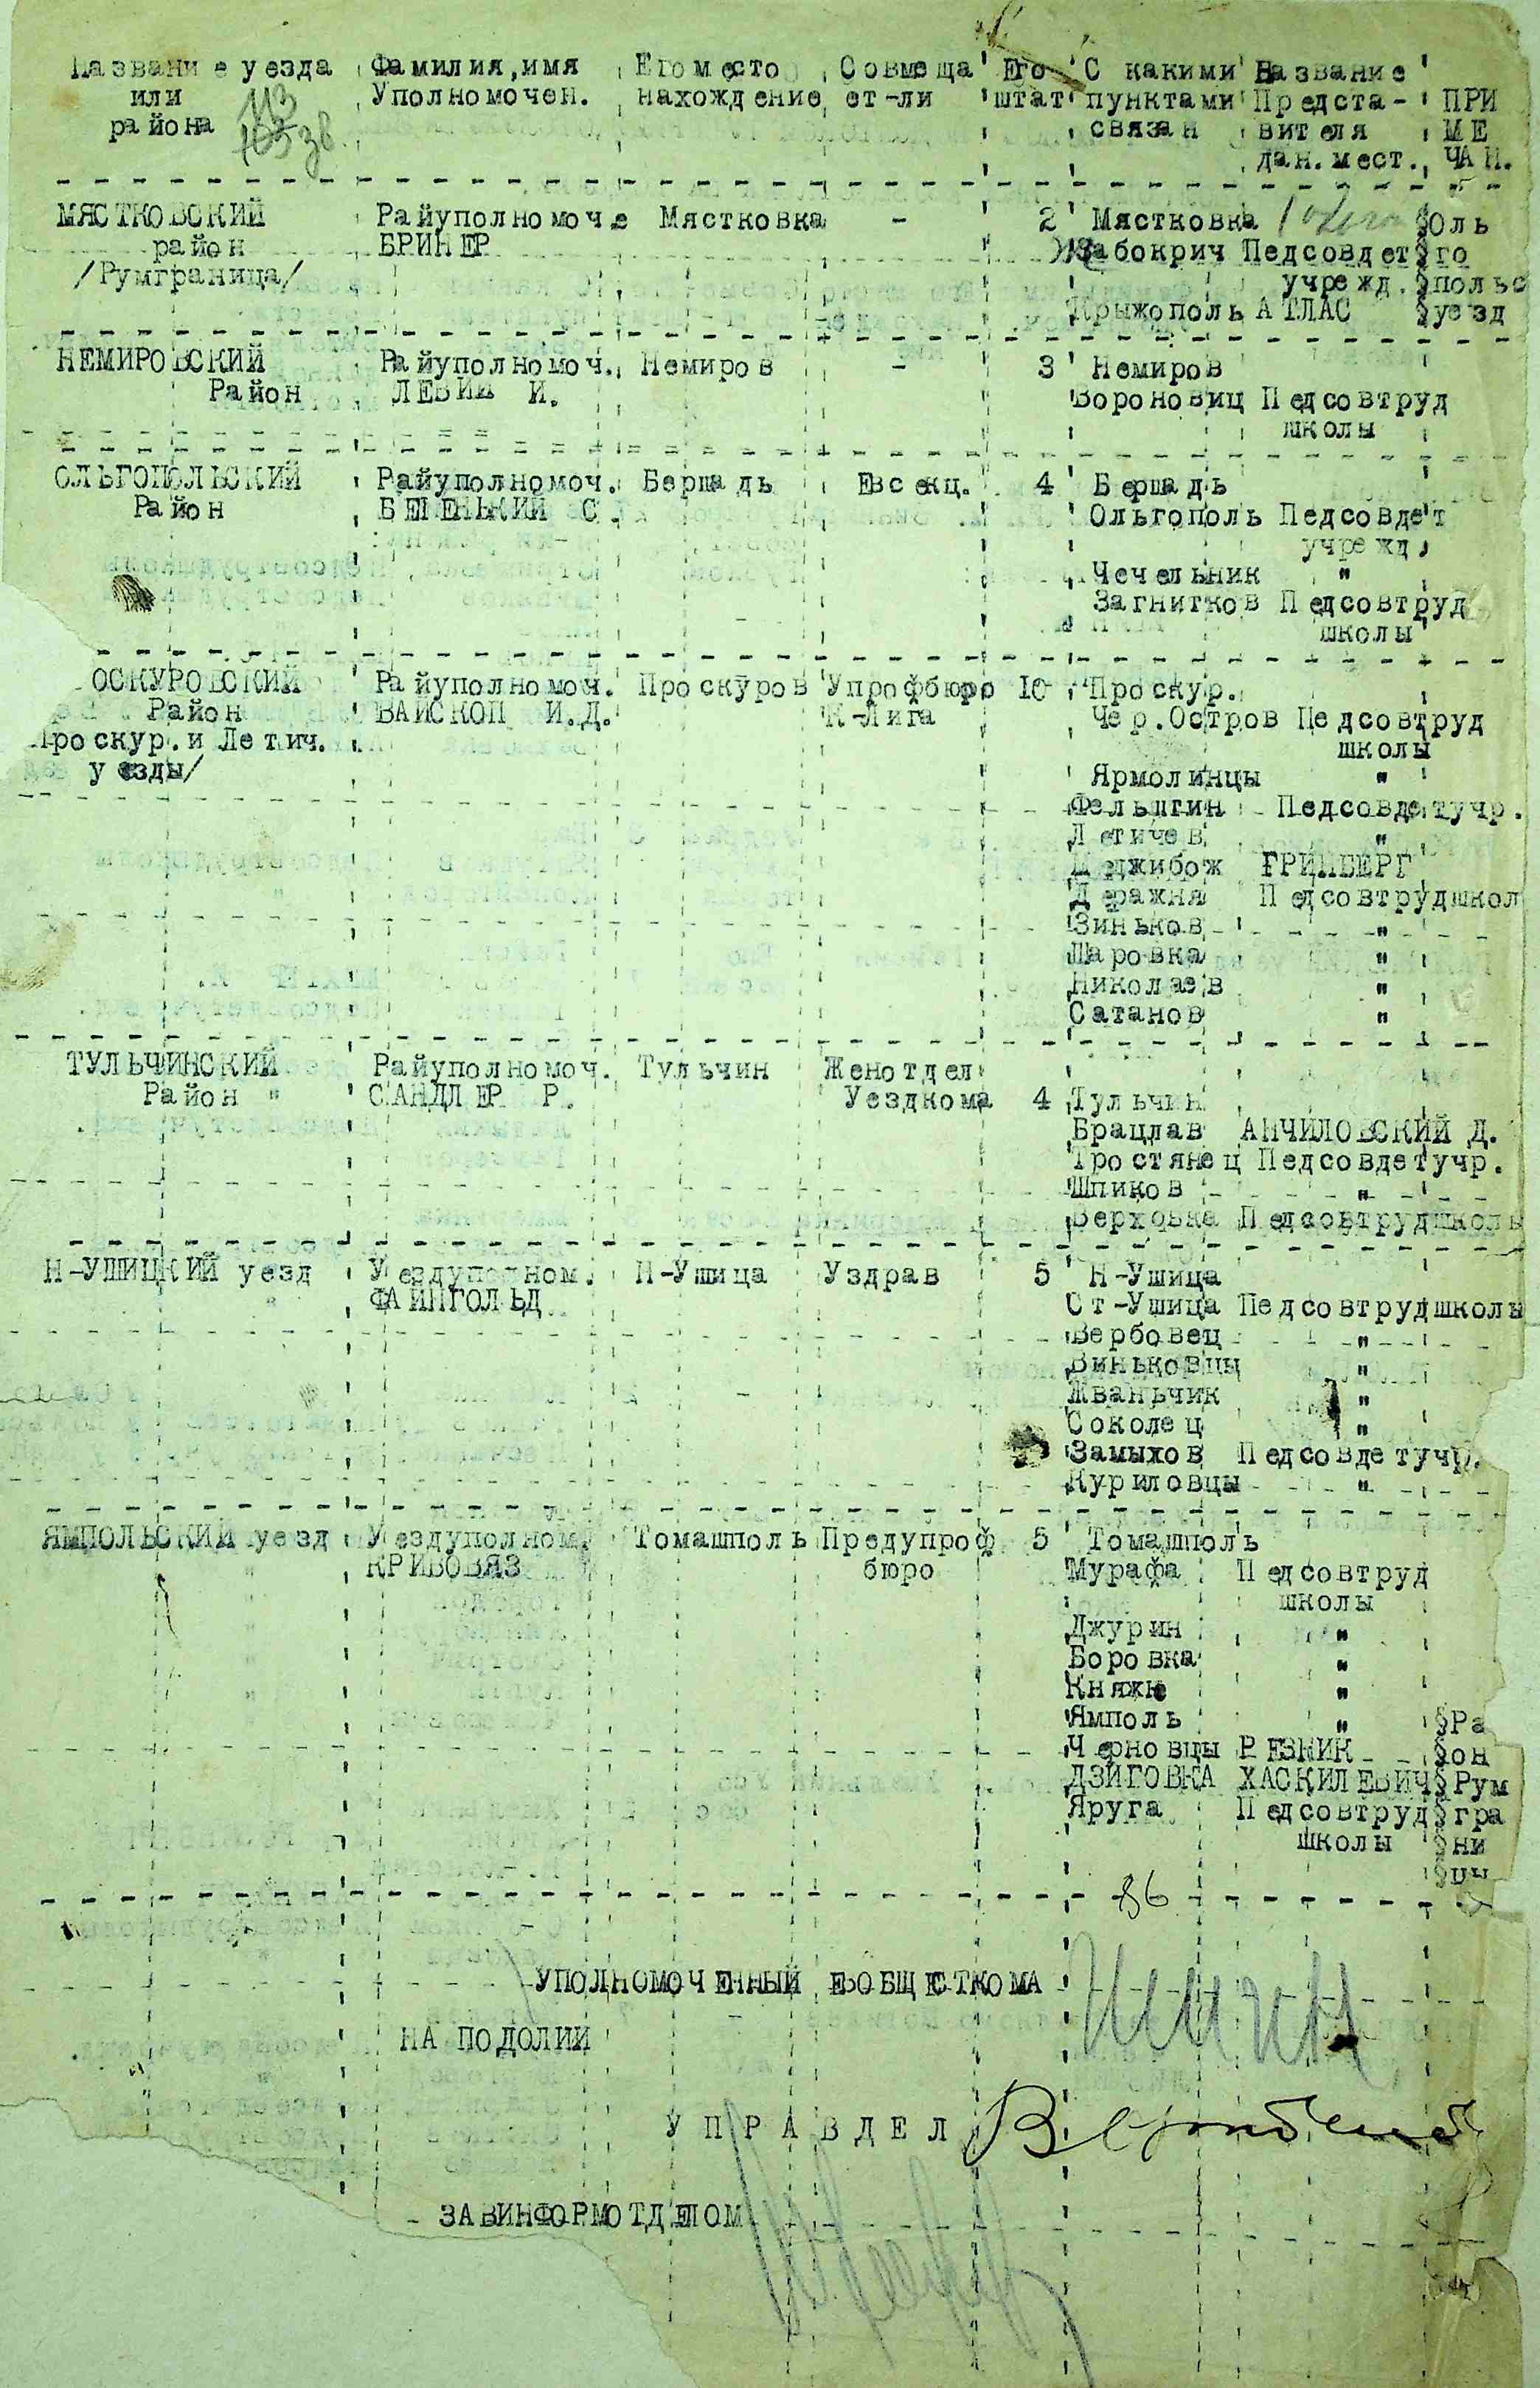 Название уезда Фамилия,имя Его место Совмеща Его С какими Название
или Уполномочен. нахождение ет-ли штат пунктами Предста- ПРИ
района связан вителя МЕ
дан.мест. ЧАН.
МЯСТКОВСКИЙ Райуполномоче Мястковка - 2 Мястковка Оль
район БРИНЕР Забокрич Педсовдет го
/Румграница/ учрежд. польс
Крыжополь АТЛАС уезд
НЕМИРОВСКИЙ Райуполномоч. Немиров - 3 Немиров
Район ЛЕВИН И. Вороновиц Педсовтруд
школы
ОЛЬГОПОЛЬСКИЙ Райуполномоч. Бершадь Евсекц. 4 Бершадь
Район БЕЛЕНЬКИЙ С. Ольгополь Педсовдет
учрежд.
Чечельник "
Загнитков Педсовтруд
школы
ОСКУРОВСКИЙ Райуполномоч. Проскуров Упрофбюро 10 Проскур.
Район ВАЙСКОП И.Д. К-Лига Чер.Остров Педсовтруд
Проскур.и Летич. школы
уезды/ Ярмолинцы "
Фельштин Педсовдетучр.
Летичев "
Меджибож ГРИНБЕРГ
Деражня Педсовтрудшкол
Зиньков "
Шаровка "
Николаев "
Сатанов "
ТУЛЬЧИНСКИЙ Райуполномоч. Тульчин Женотдел
Район " САНДЛЕР Р. Уездкома 4 Тульчин
Брацлав АНЧИЛОВСКИЙ Д.
Тростянец Педсовдетучр.
Шпиков "
Верховка Педсовтрудшколы
Н-УШИЦКИЙ уезд Уездуполном. Н-Ушица Уздрав 5 Н-Ушица
" ФАЙНГОЛЬД Ст-Ушица Педсовтрудшколы
Вербовец "
Виньковцы "
Жваньчик "
Соколец "
Замыхов Педсовдетучр.
Куриловцы "
ЯМПОЛЬСКИЙ уезд Уездуполном. Томашполь Предупроф 5 Томашполь
КРИВОВЯЗ бюро Мурафа Педсовтруд
школы
Джурин "
Боровка "
Княже "
Ямполь " §Ра
Черновцы РЕЗНИК §он
ДЗИГОВКА ХАСКИЛЕВИЧ §Рум
Яруга Педсовтруд §гра
школы §ни
§цы
86
УПОЛНОМОЧЕННЫЙ ЕВОБЩЕСТКОМА
НА ПОДОЛИИ
УПРАВДЕЛ
ЗАВИНФОРМОТДЕЛОМ